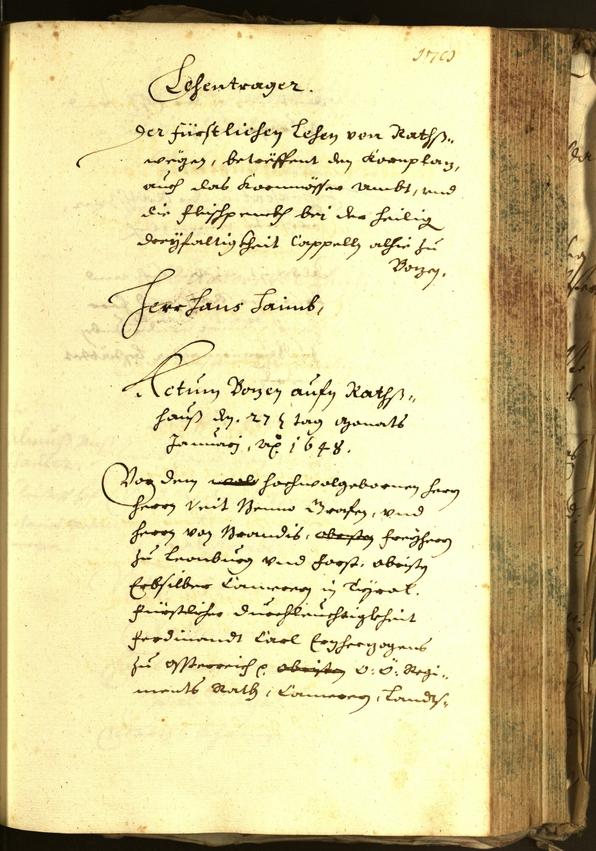 Lehentrager.
Der fürstlichen Lehen von Rathß„
wegen, betreffent den Kornplaz,
auch das Kornmösser Ambt, vnd
die fleischpenckh bei der heilig
dreÿfaltigkheit Cappelln alhie zu
Bozen.
Herr Hans Saimb,
Actum Bozen aufm Rathß„
hauß den 27 tag Monats
Januarj, ao 1648.
Von dem hochwolgebornen herrn
herrn Veit Benno Grafen, vnd
herrn von Brandis, freÿherrn
zu Leonburg vnd Forst, obristn
Erbsilber Camerern in Tÿrol.
Fürstlicher durchleuchtigkheit
Ferdinandt Carl Erzherzogens
zu Össterreich O: Ö: Regi„
ments Rath, Camerern, Landts„